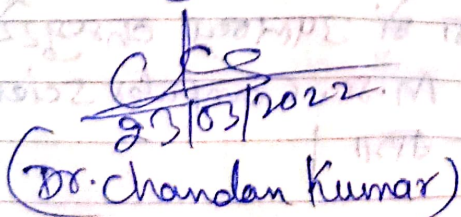 23/03/2022.
(Dr. Chandan Kumar)